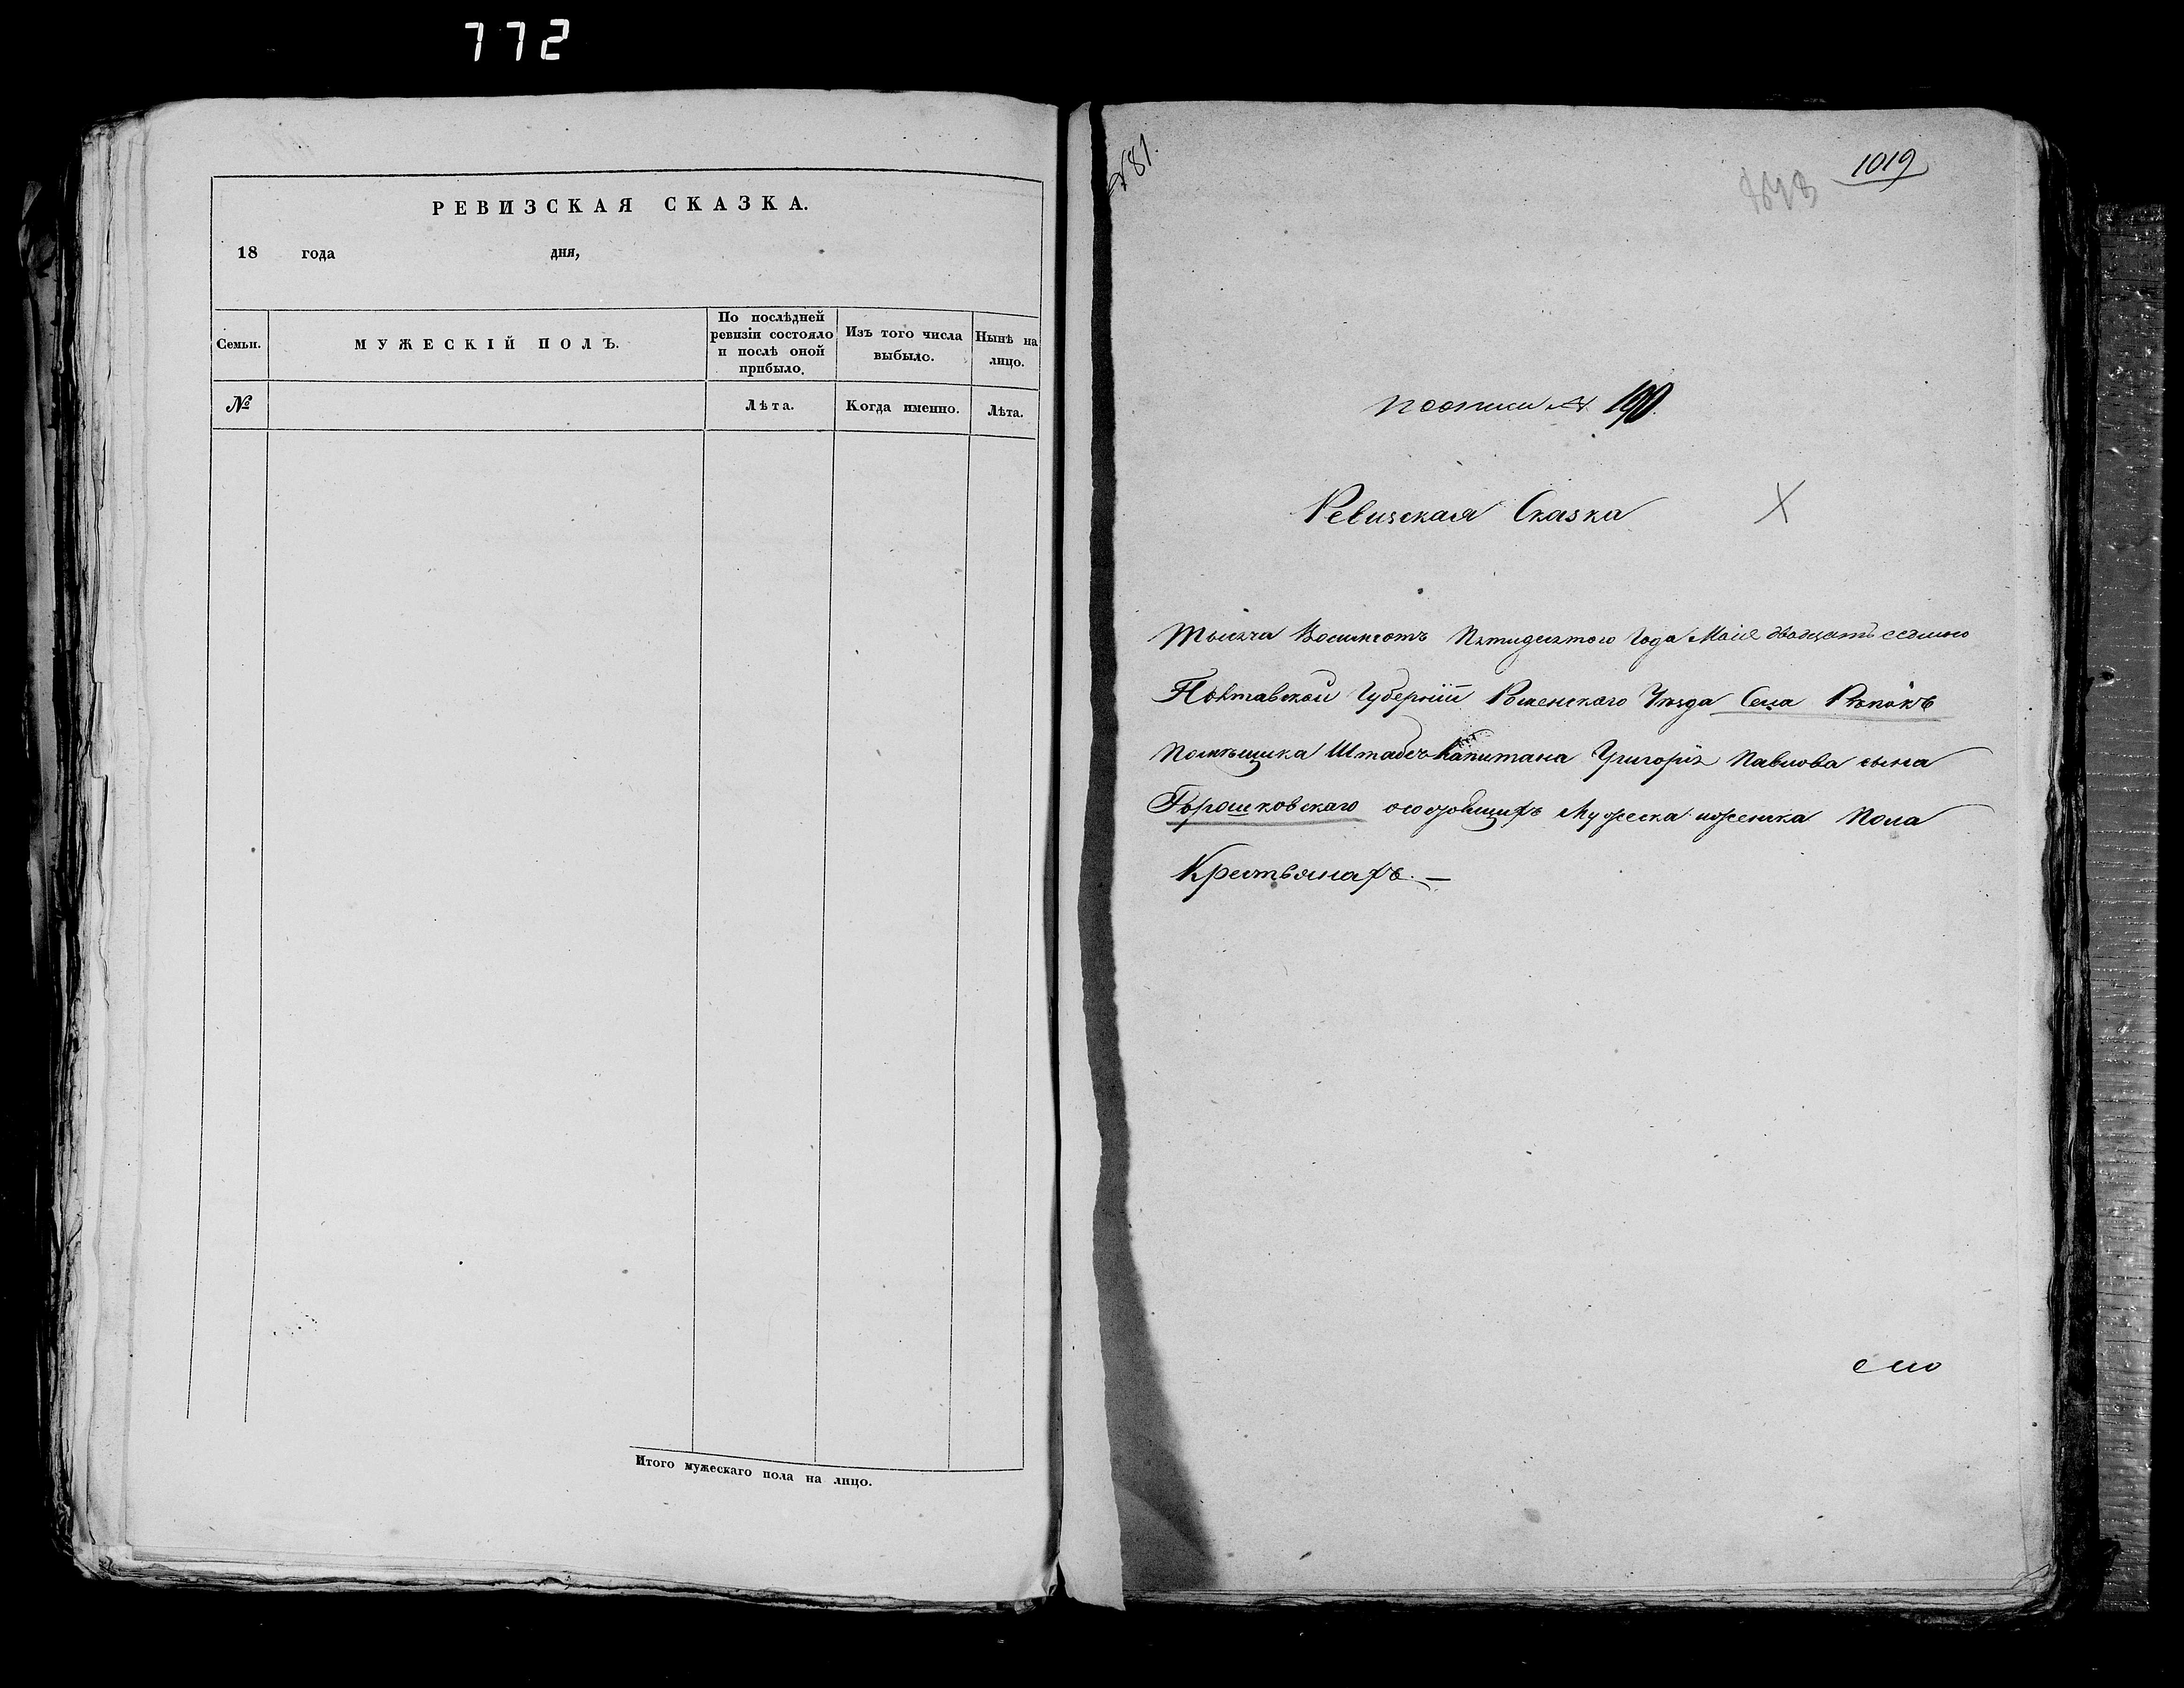 772
РЕВИЗСКАЯ СКАЗКА.
18 года дня,
Семьи.
МУЖЕСКІЙ ПОЛЪ.
По послѣдней
ревизіи состояло
и послѣ оной
прибыло.
Изъ того числа
выбыло.
Нынѣ на
лицо.
№
Лѣта.
Когда именно.
Лѣта.
Итого мужескаго пола на лицо.
№ 81.
1019
поописи № 190.
Ревизская Сказка
Тысяча Восимсотъ Пятидесятого Года Маія двадцать седмого
Полтавской Губерніи Роменского Уѣзда Села Рѣпокъ
Помѣщика Штабсъ-Капитана Григорія Павлова сына
Горошковскаго осостоящихъ Мужеска иженска Пола
Крестьянахъ. —